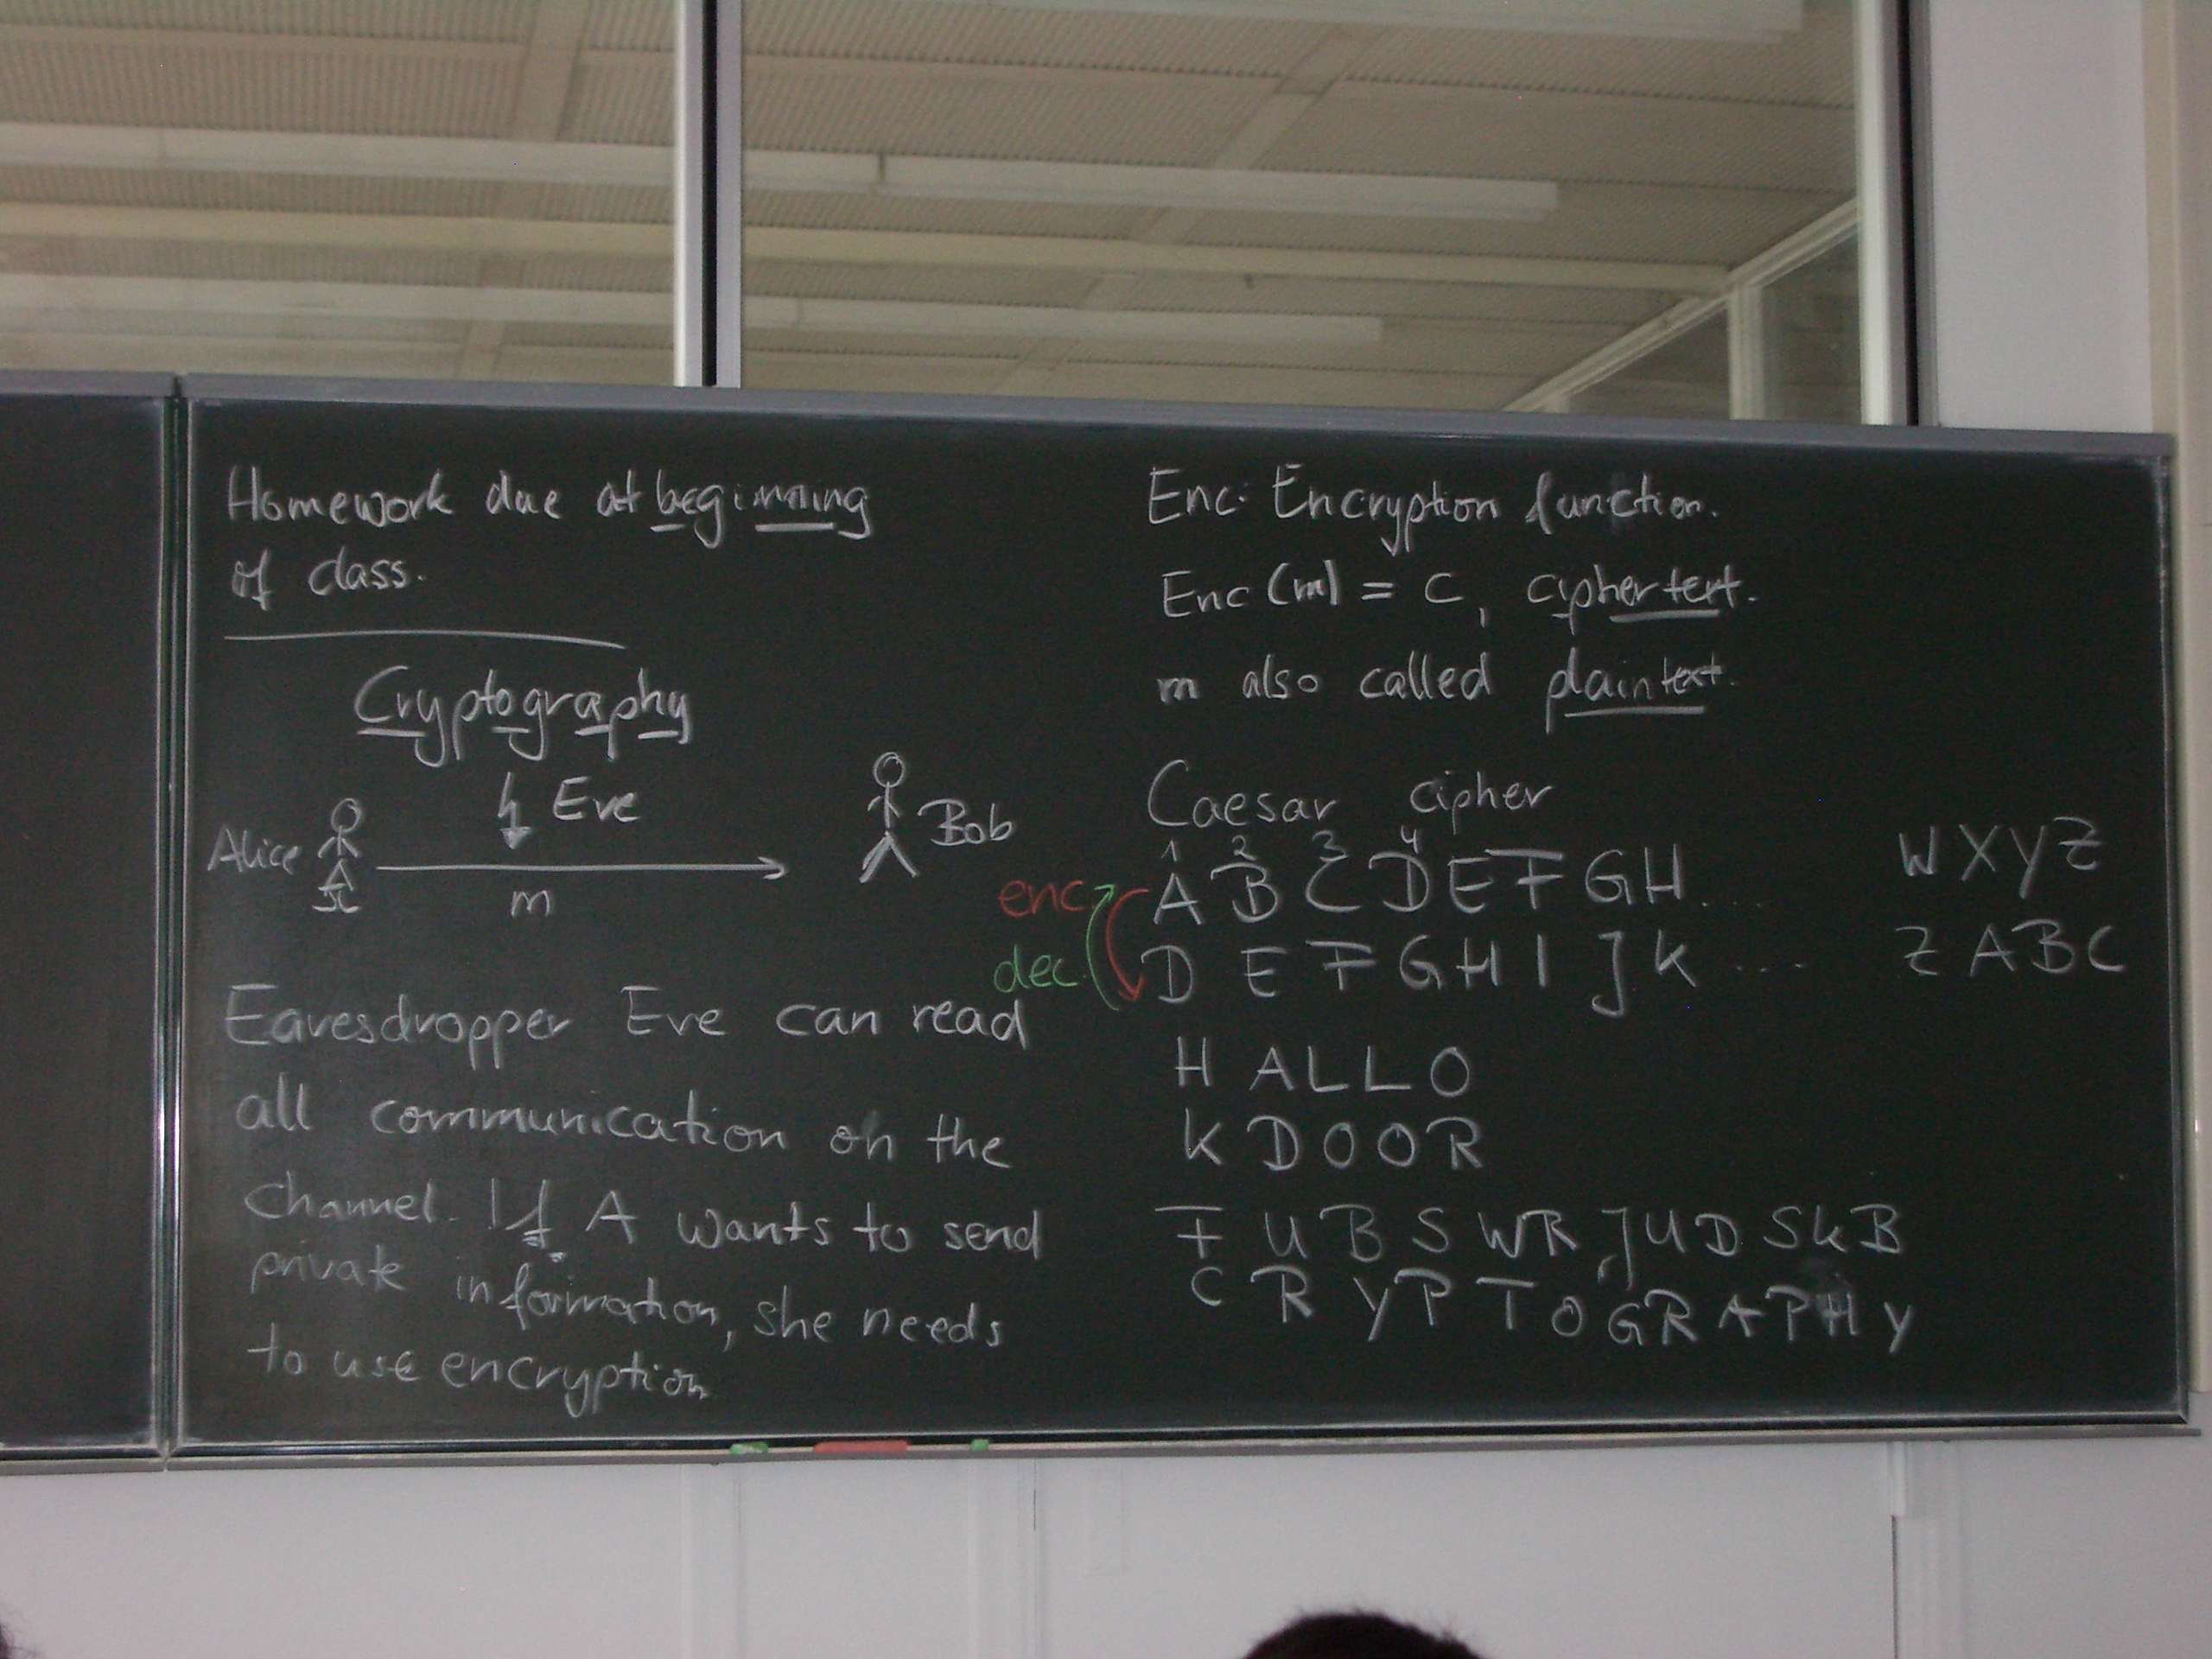 Homework due at beginning
of class.
Cryptography
Eve
Alice
Bob
m
Eavesdropper Eve can read
all communication on the
channel. If A wants to send
private information, she needs
to use encryption
Enc: Encryption function.
Enc(m) = C, ciphertext.
m also called plaintext.
Caesar cipher
1 2 3 4
enc. A B C D E F G H .... W X Y Z
dec. D E F G H I J K .... Z A B C
H A L L O
K D O O R
F U B S W R J U D S K B
C R Y P T O G R A P H Y